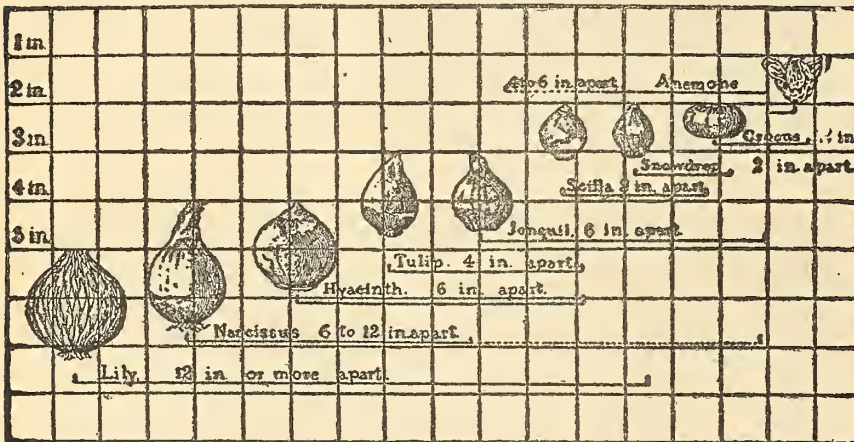 1 in
2 in.
3 in
4 in.
5 in.
4 to 6 in. apart Anemone
Crocus
Snowdrop 2 in. apart.
Scilla 2 in. apart
Jonquil, 6 in. apart
Tulip. 4 in. apart
Hyacinth. 6 in. apart.
Narcissus 6 to 12 in. apart
Lily. 12 in or more apart.